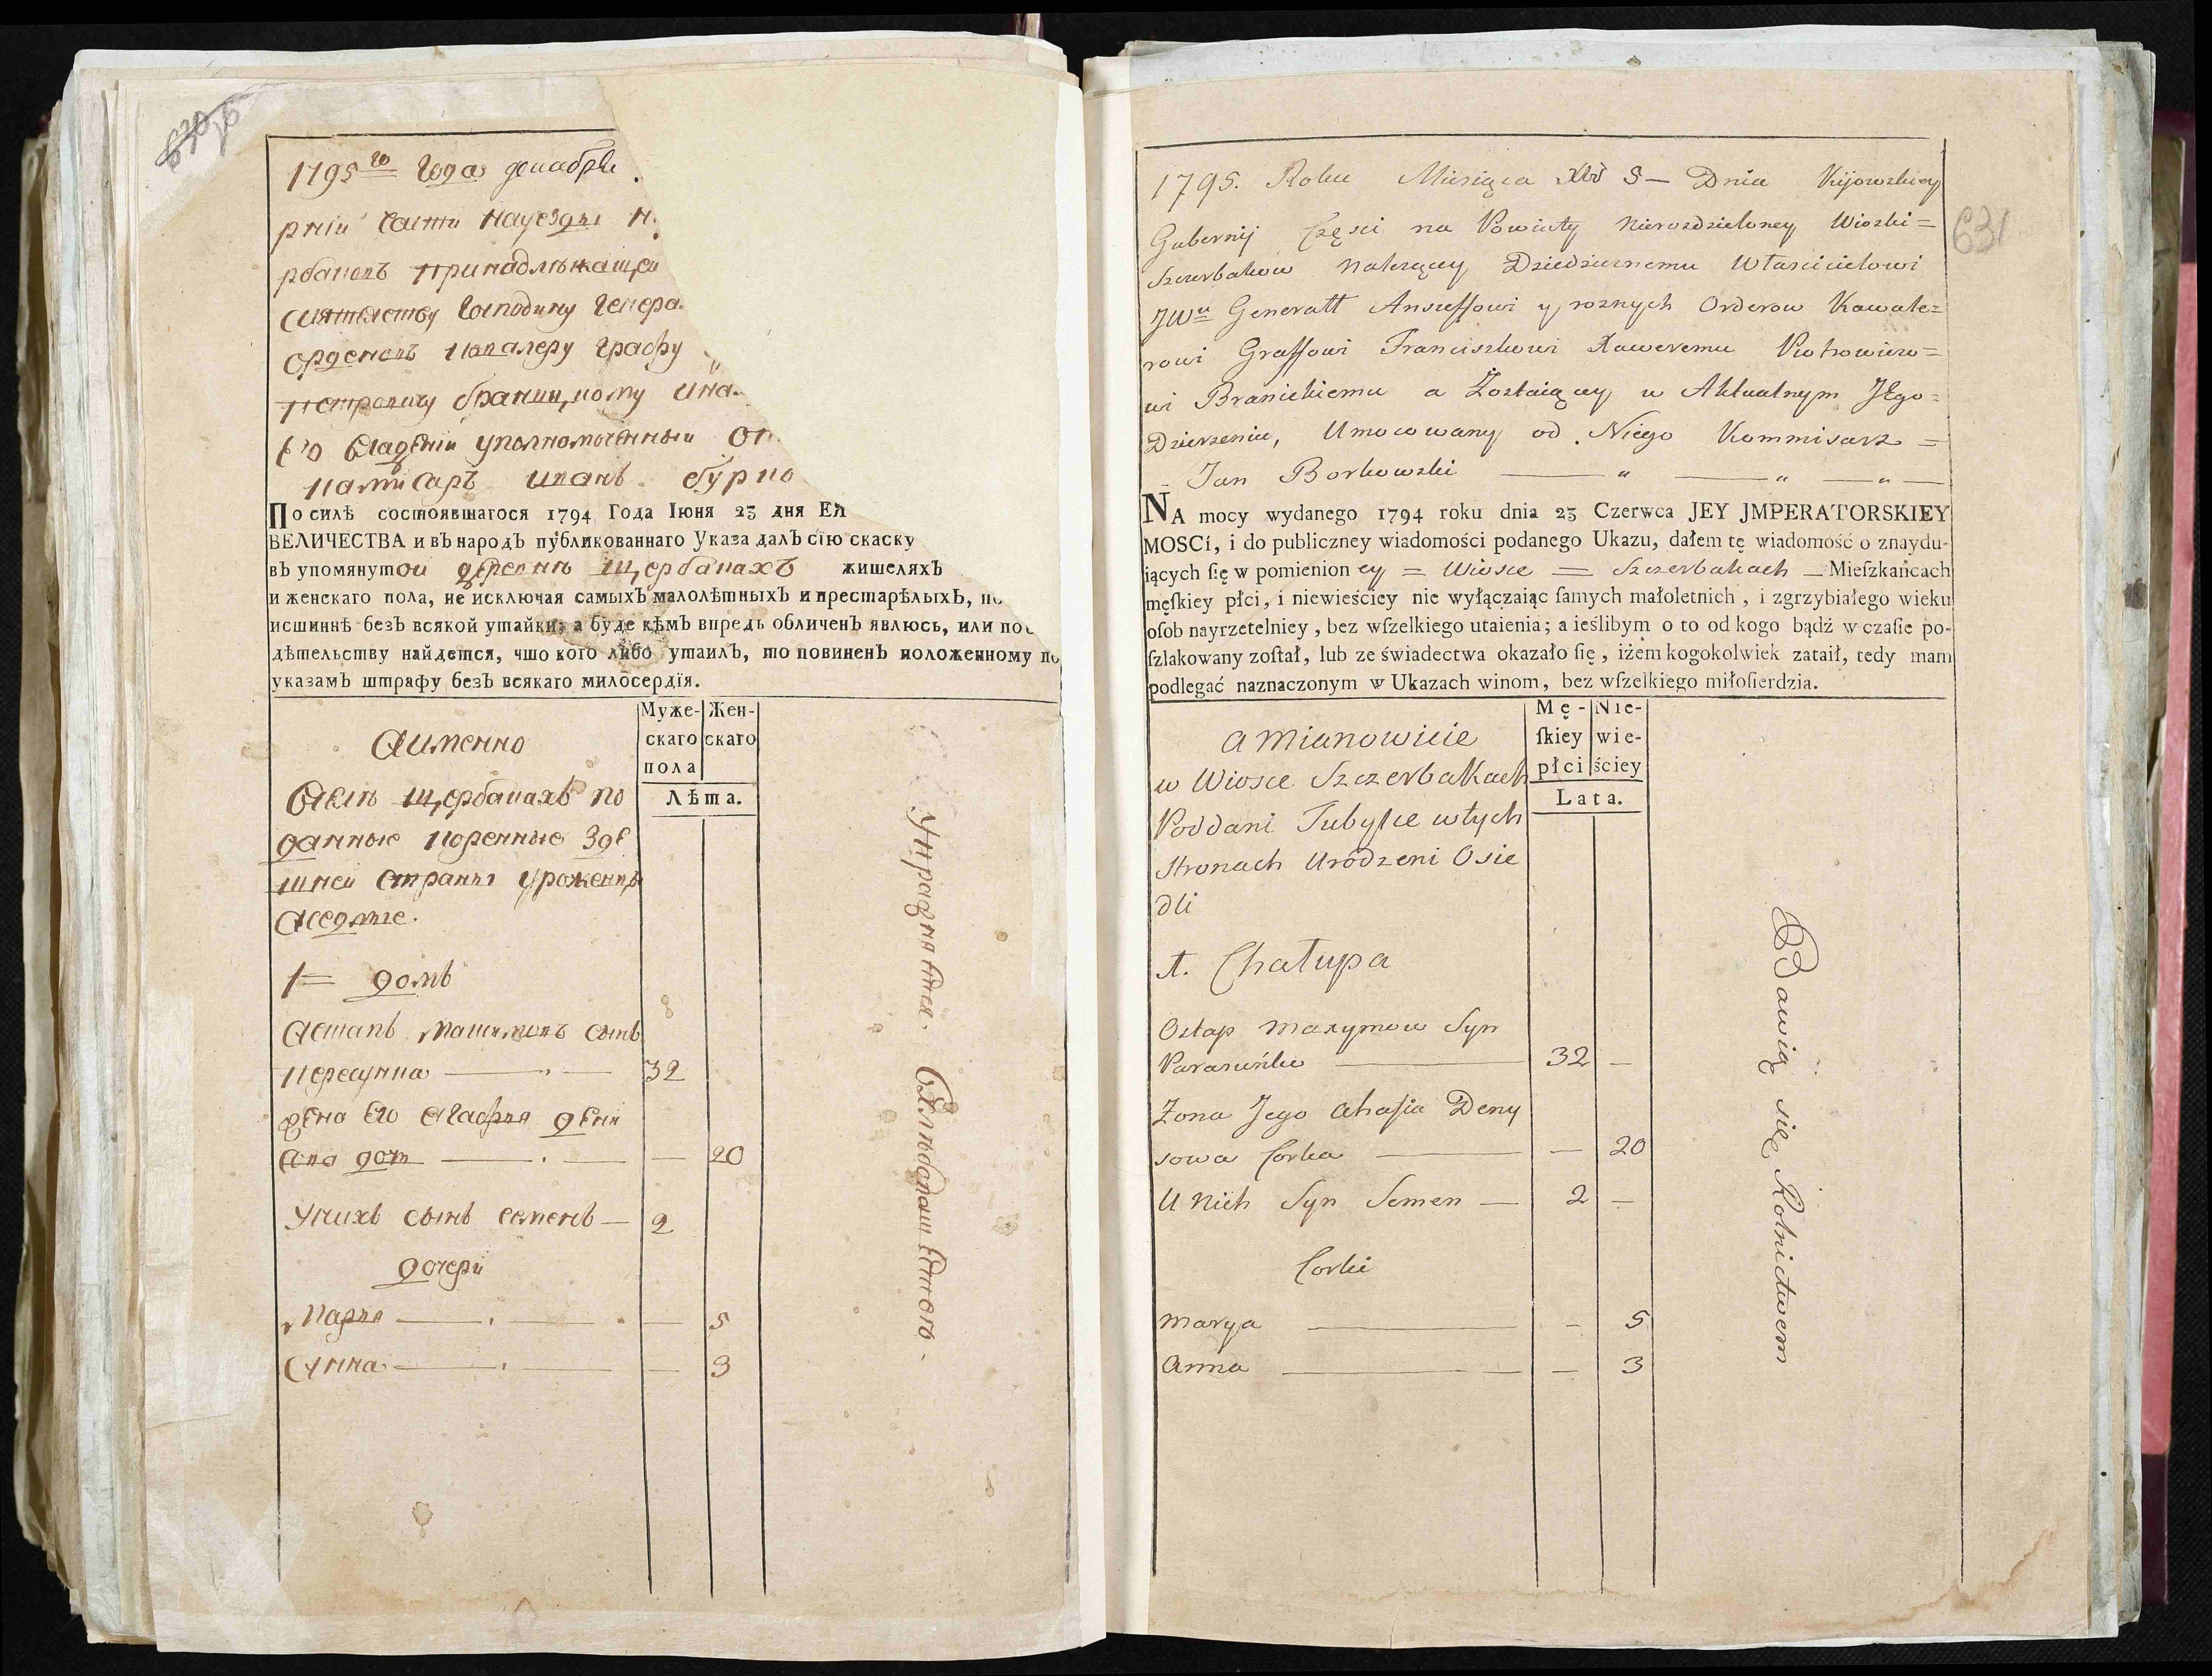 1795го Года декабря
рнiи части науезды н
рбаковъ принадлѣжащеи
сиятелству Господину Генера
орденовъ кавалеру Графу
петровичу браницкому ина
Его владенiи уполномоченныи от
камисаръ иванъ бурко
По силѣ состоявшагося 1794 Года Iюня 23 дня ЕЯ
ВЕЛИЧЕСТВА и въ народъ публикованнаго Указа далъ сїю скаску
въ упомянутои деревнѣ щербакахъ жителяхъ
и женскаго пола, не исключая самыхъ малолѣтныхъ и престарѣлыхъ, по
истиннѣ безъ всякой утайки; а буде кѣмъ впредь обличенъ явлюсь, или по с
дѣтельству найдется, что кого либо утаилъ, то повиненъ положенному по
указамъ штрафу безъ всякаго милосердїя.
Муже- Жен-
скаго скаго
пола
Лѣта.
Аименно
Вселѣ щербакахъ по
данные коренные зде
шнеи страны уроженцы
Аседлые.
1 = домъ
Астапъ Машимовъ сынъ
Пересунка 32
жена Его Агафия дени
сова доч 20
Унихъ сынъ семенъ 2
дочери
Марія 5
Анна 3
Упражняются Хлѣбопашествомъ
1795. Roku Miesiąca Xbrs 5 – Dnia Kijowskiey
631
Gubernij Części na Powiaty Nierozdzieloney Wioski =
Szczerbakow Nalezącey Dziedzicznemu Włascicielowi
JWu Generałł Anszeffowi y roznych Orderow Kawale=
rowi Graffowi Franciszkowi Xaweremu Piotrowiczo=
wi Branickiemu a Zostaiącey w Aktualnym JEgo=
Dzierzeniu, Umocowany od Niego Kommisarz =
Jan Borkowski
NA mocy wydanego 1794 roku dnia 23 Czerwca JEY JMPERATORSKIEY
MOSCí, i do publiczney wiadomości podanego Ukazu, dałem tę wiadomość o znaydu-
iących ſię w pomienion ey = Wiosce = Szczerbakach – Mieſzkańcach
męſkiey płci, i niewieściey nie wyłączaiąc ſamych małoletnich, i zgrzybiałego wieku
oſob nayrzetelniey, bez wſzelkiego utaienia; a ieślibym o to od kogo bądź w czaſie po-
ſzlakowany zoſtał, lub ze świadectwa okazało ſię, iżem kogokolwiek zataił, tedy mam
podlegać naznaczonym w Ukazach winom, bez wſzelkiego miłoſierdzia.
Mę- Nie-
ſkiey wie-
płci ściey
Lata.
a mianowicie
w Wiosce Szczerbakach
Poddani Tubylce wtych
stronach Urodzeni Osie
dli
1. Chałupa
Ostap Maxymow Syn
Parasuńko 32 –
Zona Jego Ahafia Deny
sowa Corka – 20
U Nich Syn Semen – 2 –
Corki
Marya – 5
Anna – 3
Bawią się Rolnictwem